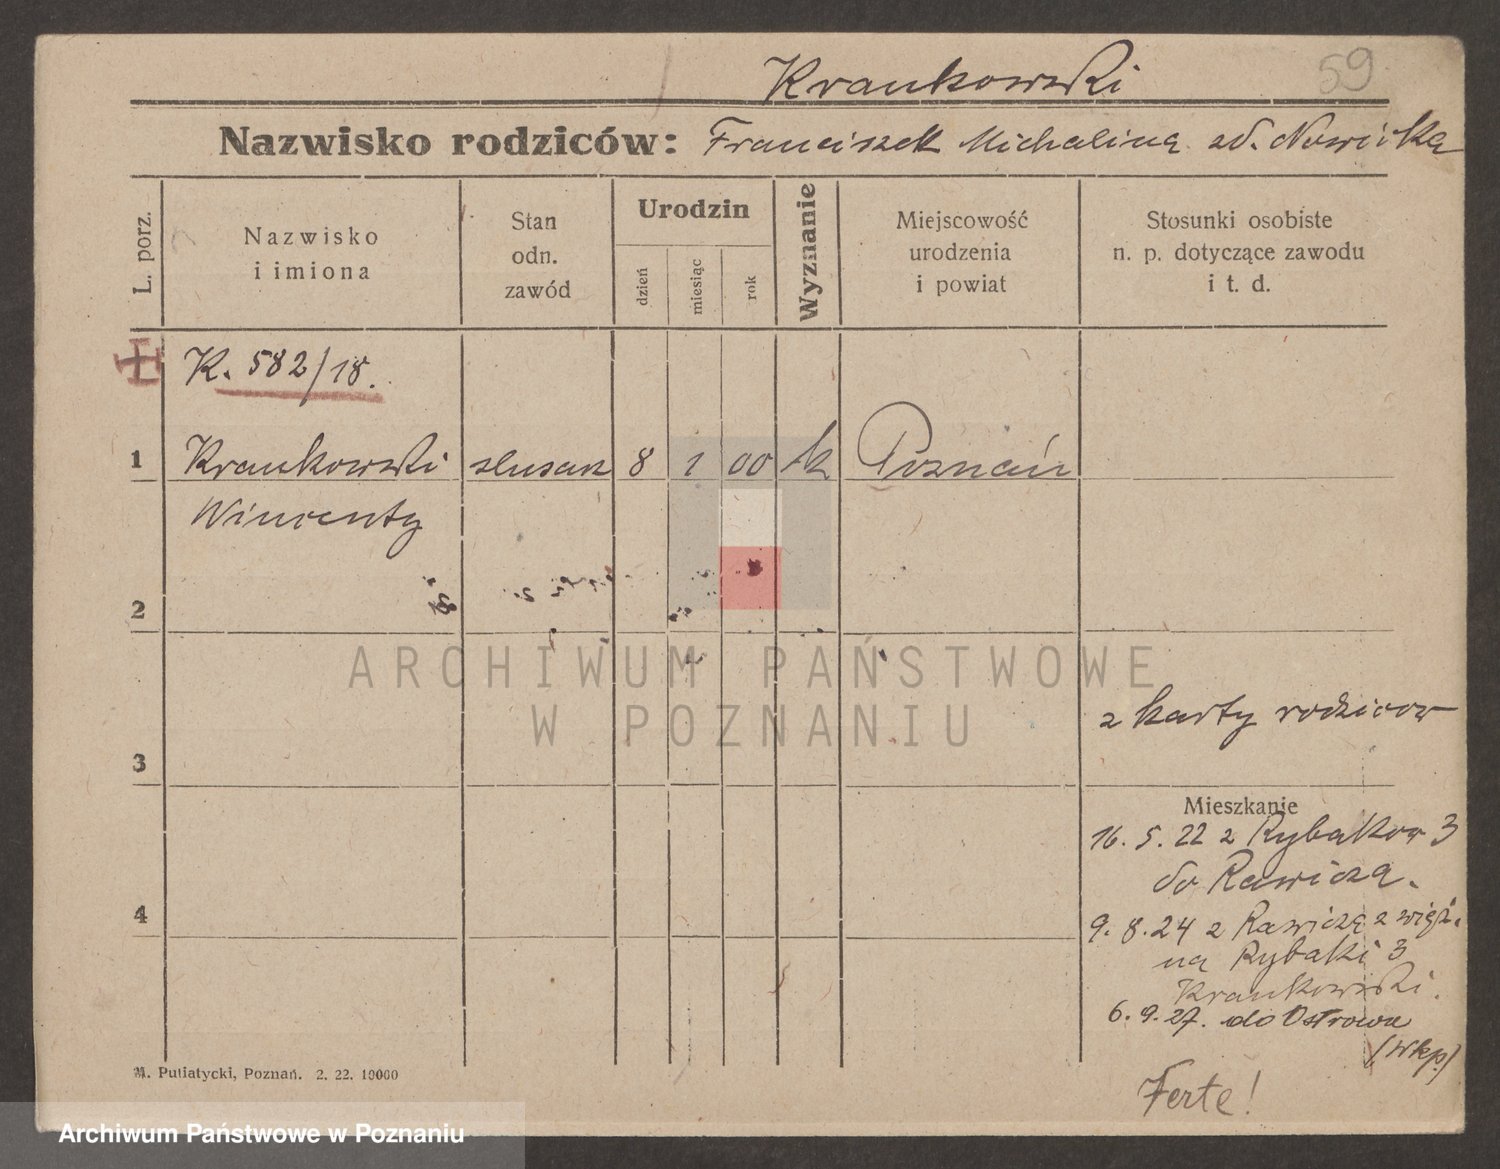 59
Krankowski
Nazwisko rodziców: Franciszek Michalina zd. Nowicka
L. porz.
Nazwisko
i imiona
Stan
odn.
zawód
Urodzin
dzień
miesiąc
rok
Wyznanie
Miejscowość
urodzenia
i powiat
Stosunki osobiste
n. p. dotyczące zawodu
i t. d.
K. 582/18.
1 Krankowski ślusarz 8 1 00 k Poznań
Wincenty
2
ARCHIWUM PAŃSTWOWE
W POZNANIU
z karty rodziców
3
Mieszkanie
16. 5. 22 z Rybaków 3
do Rawicza.
4
9. 8. 24 z Rawicza z więź.
na Rybaki 3
Krankowski.
6. 9. 27. do Ostrowa
(Wkp.)
M. Putiatycki, Poznań. 2. 22. 10000
Ferte!
Archiwum Państwowe w Poznaniu